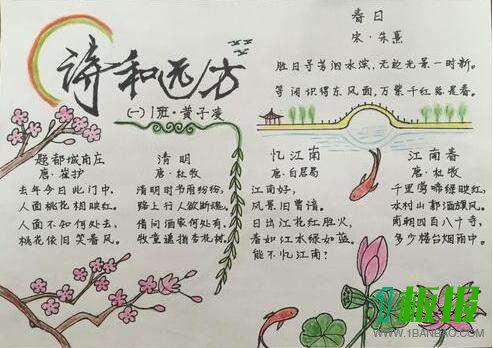 诗和远方
(一)1班·黄子凌
春日
宋·朱熹
胜日寻芳泗水滨,无边光景一时新。
等闲识得东风面,万紫千红总是春。
题都城南庄
唐·崔护
去年今日此门中,
人面桃花相映红。
人面不知何处去,
桃花依旧笑春风。
清明
唐·杜牧
清明时节雨纷纷,
路上行人欲断魂。
借问酒家何处有,
牧童遥指杏花村。
忆江南
唐·白居易
江南好,
风景旧曾谙。
日出江花红胜火,
春来江水绿如蓝。
能不忆江南?
江南春
唐·杜牧
千里莺啼绿映红,
水村山郭酒旗风。
南朝四百八十寺,
多少楼台烟雨中。
板报
WWW.1BANBAO.COM